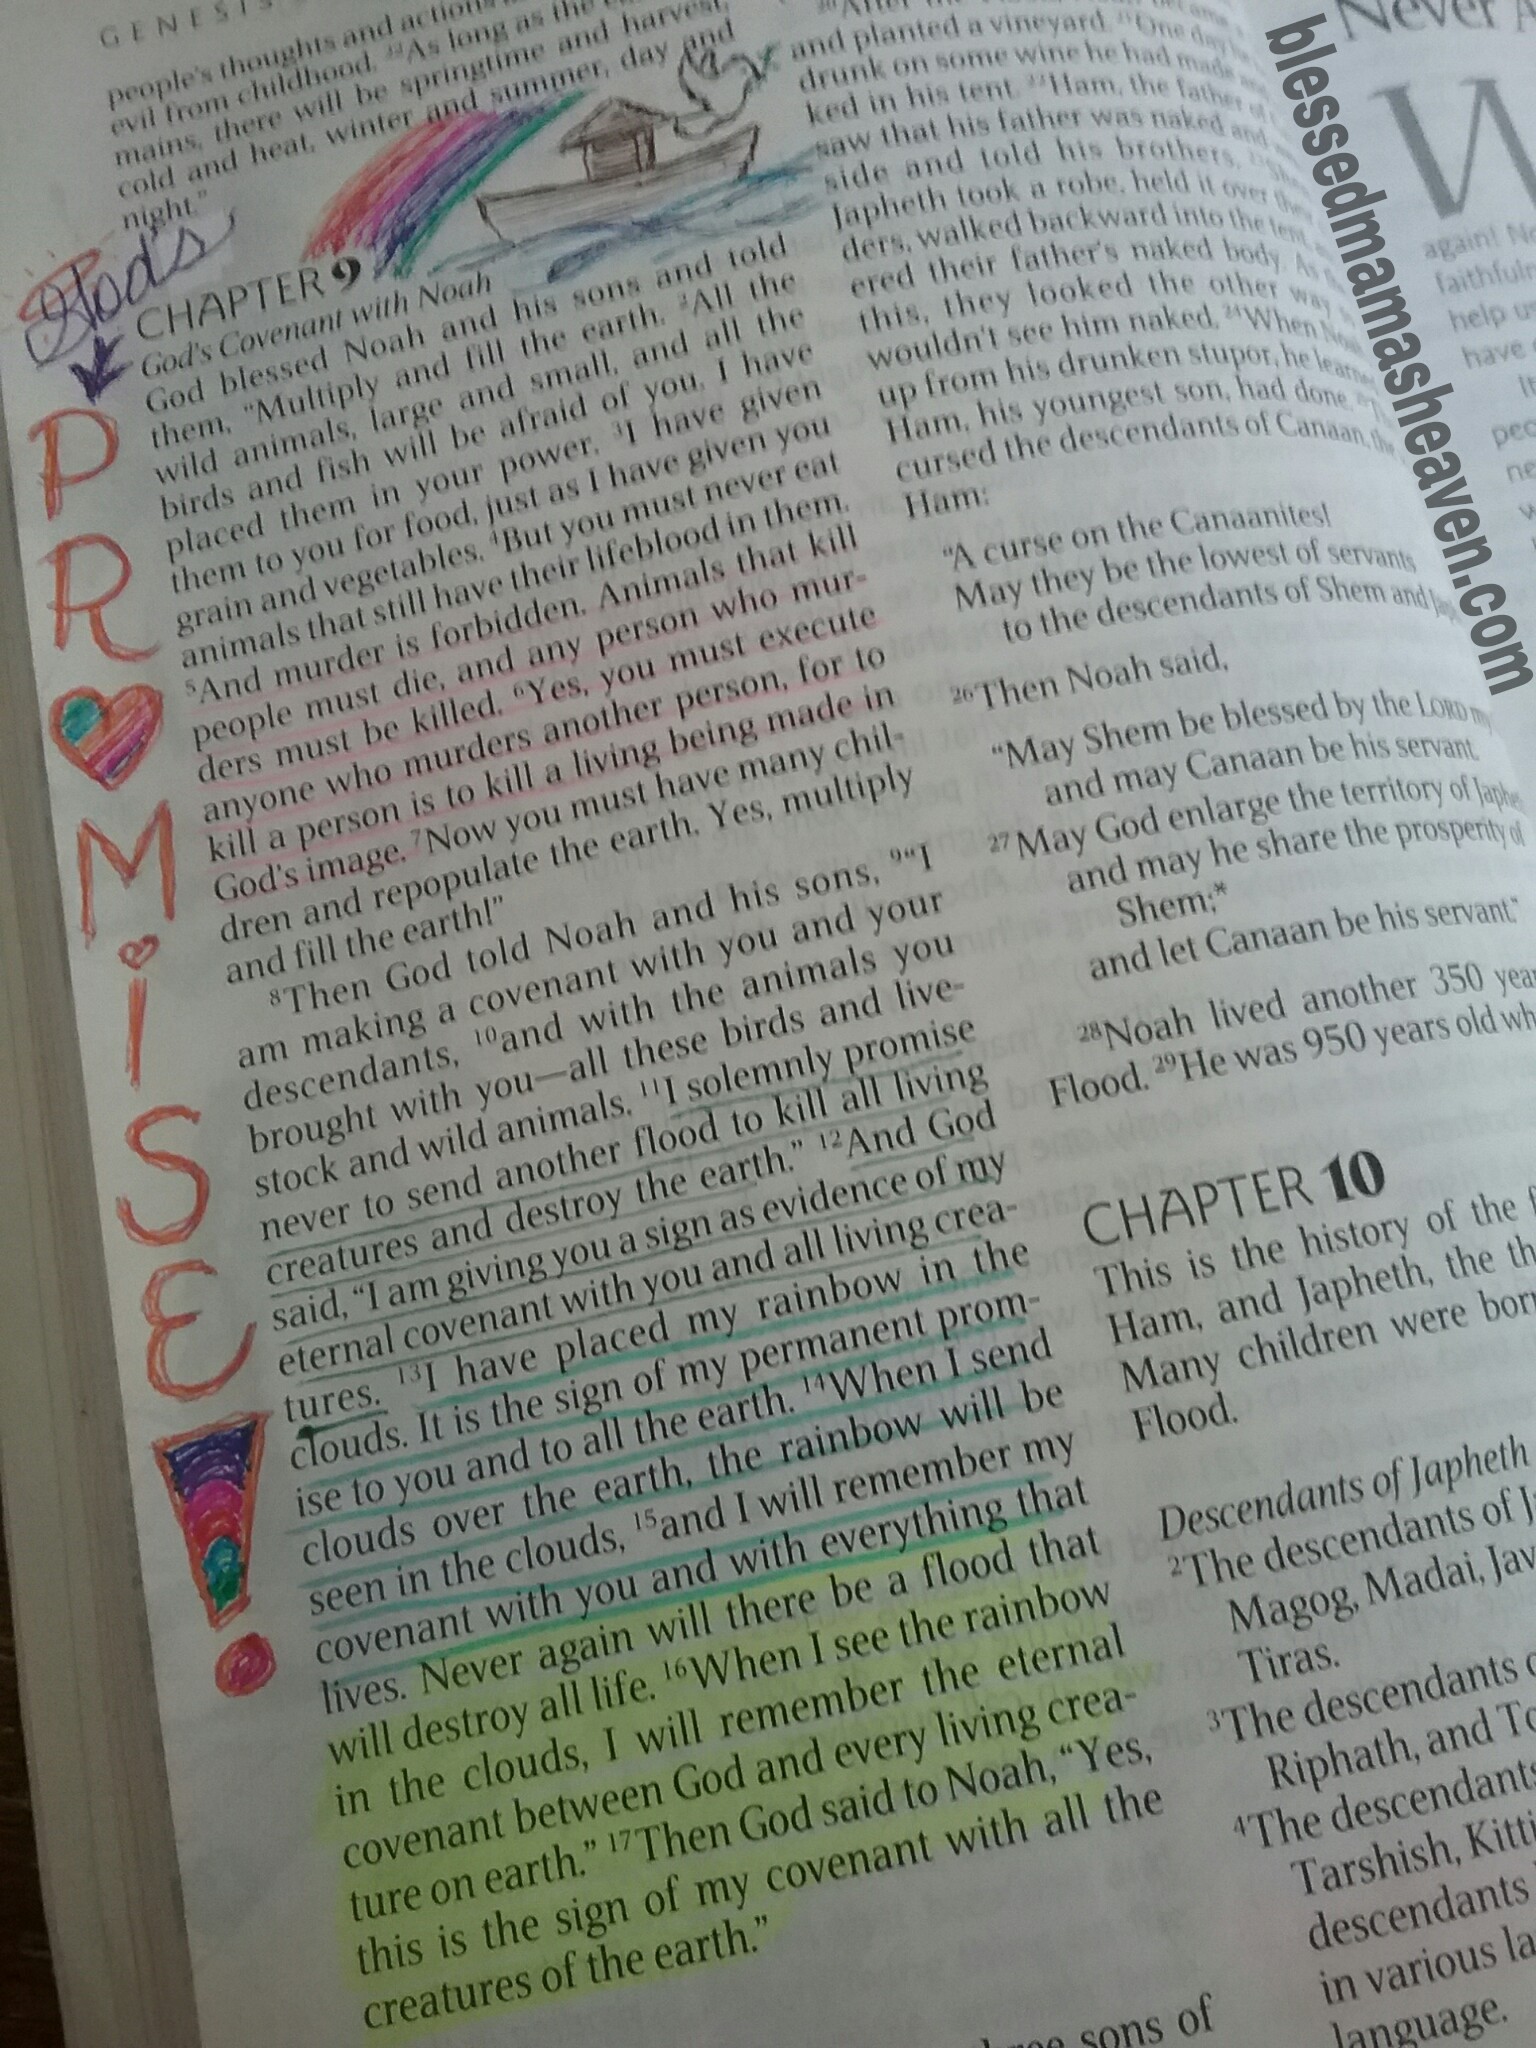 GENESIS
people's thoughts and actions
evil from childhood. 22As long as the
mains, there will be springtime and harvest,
cold and heat, winter and summer, day and
night."
God's
PROMISE!
CHAPTER 9
God's Covenant with Noah
God blessed Noah and his sons and told
them, "Multiply and fill the earth. 2All the
wild animals, large and small, and all the
birds and fish will be afraid of you. I have
placed them in your power. 3I have given
them to you for food, just as I have given you
grain and vegetables. 4But you must never eat
animals that still have their lifeblood in them.
5And murder is forbidden. Animals that kill
people must die, and any person who mur-
ders must be killed. 6Yes, you must execute
anyone who murders another person, for to
kill a person is to kill a living being made in
God's image. 7Now you must have many chil-
dren and repopulate the earth. Yes, multiply
and fill the earth!"
8Then God told Noah and his sons, 9"I
am making a covenant with you and your
descendants, 10and with the animals you
brought with you—all these birds and live-
stock and wild animals. 11I solemnly promise
never to send another flood to kill all living
creatures and destroy the earth." 12And God
said, "I am giving you a sign as evidence of my
eternal covenant with you and all living crea-
tures. 13I have placed my rainbow in the
clouds. It is the sign of my permanent prom-
ise to you and to all the earth. 14When I send
clouds over the earth, the rainbow will be
seen in the clouds, 15and I will remember my
covenant with you and with everything that
lives. Never again will there be a flood that
will destroy all life. 16When I see the rainbow
in the clouds, I will remember the eternal
covenant between God and every living crea-
ture on earth." 17Then God said to Noah, "Yes,
this is the sign of my covenant with all the
creatures of the earth."
sons of
20After the
and planted a vineyard. 21One day he
drunk on some wine he had made and
ked in his tent. 22Ham, the father of
saw that his father was naked and
side and told his brothers.
Japheth took a robe, held it over their
ders, walked backward into the tent,
ered their father's naked body. As
this, they looked the other way
wouldn't see him naked. 24When Noah
up from his drunken stupor, he learned
Ham, his youngest son, had done.
cursed the descendants of Canaan, the
Ham:
"A curse on the Canaanites!
May they be the lowest of servants
to the descendants of Shem and
26Then Noah said,
"May Shem be blessed by the LORD my
and may Canaan be his servant.
27May God enlarge the territory of
and may he share the prosperity of
Shem;*
and let Canaan be his servant."
28Noah lived another 350
Flood. 29He was 950 years old
CHAPTER 10
This is the history of the
Ham, and Japheth, the
Many children were born
Flood.
Descendants of Japheth
2The descendants of
Magog, Madai,
Tiras.
3The descendants
Riphath, and
4The descendants
Tarshish,
descendants
in various
language.
Never
W
again!
help us
have
blessedmamasheaven.com